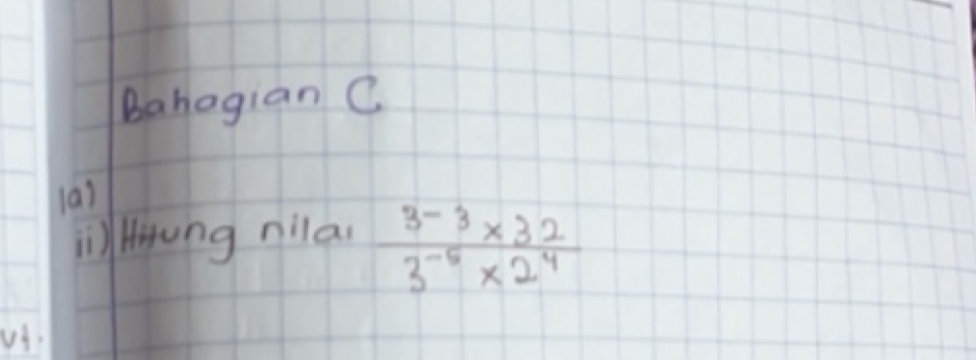 Bahagian C
1a)
ii) Hitung nilai 3⁻³ × 32 / 3⁻⁵ × 2⁴